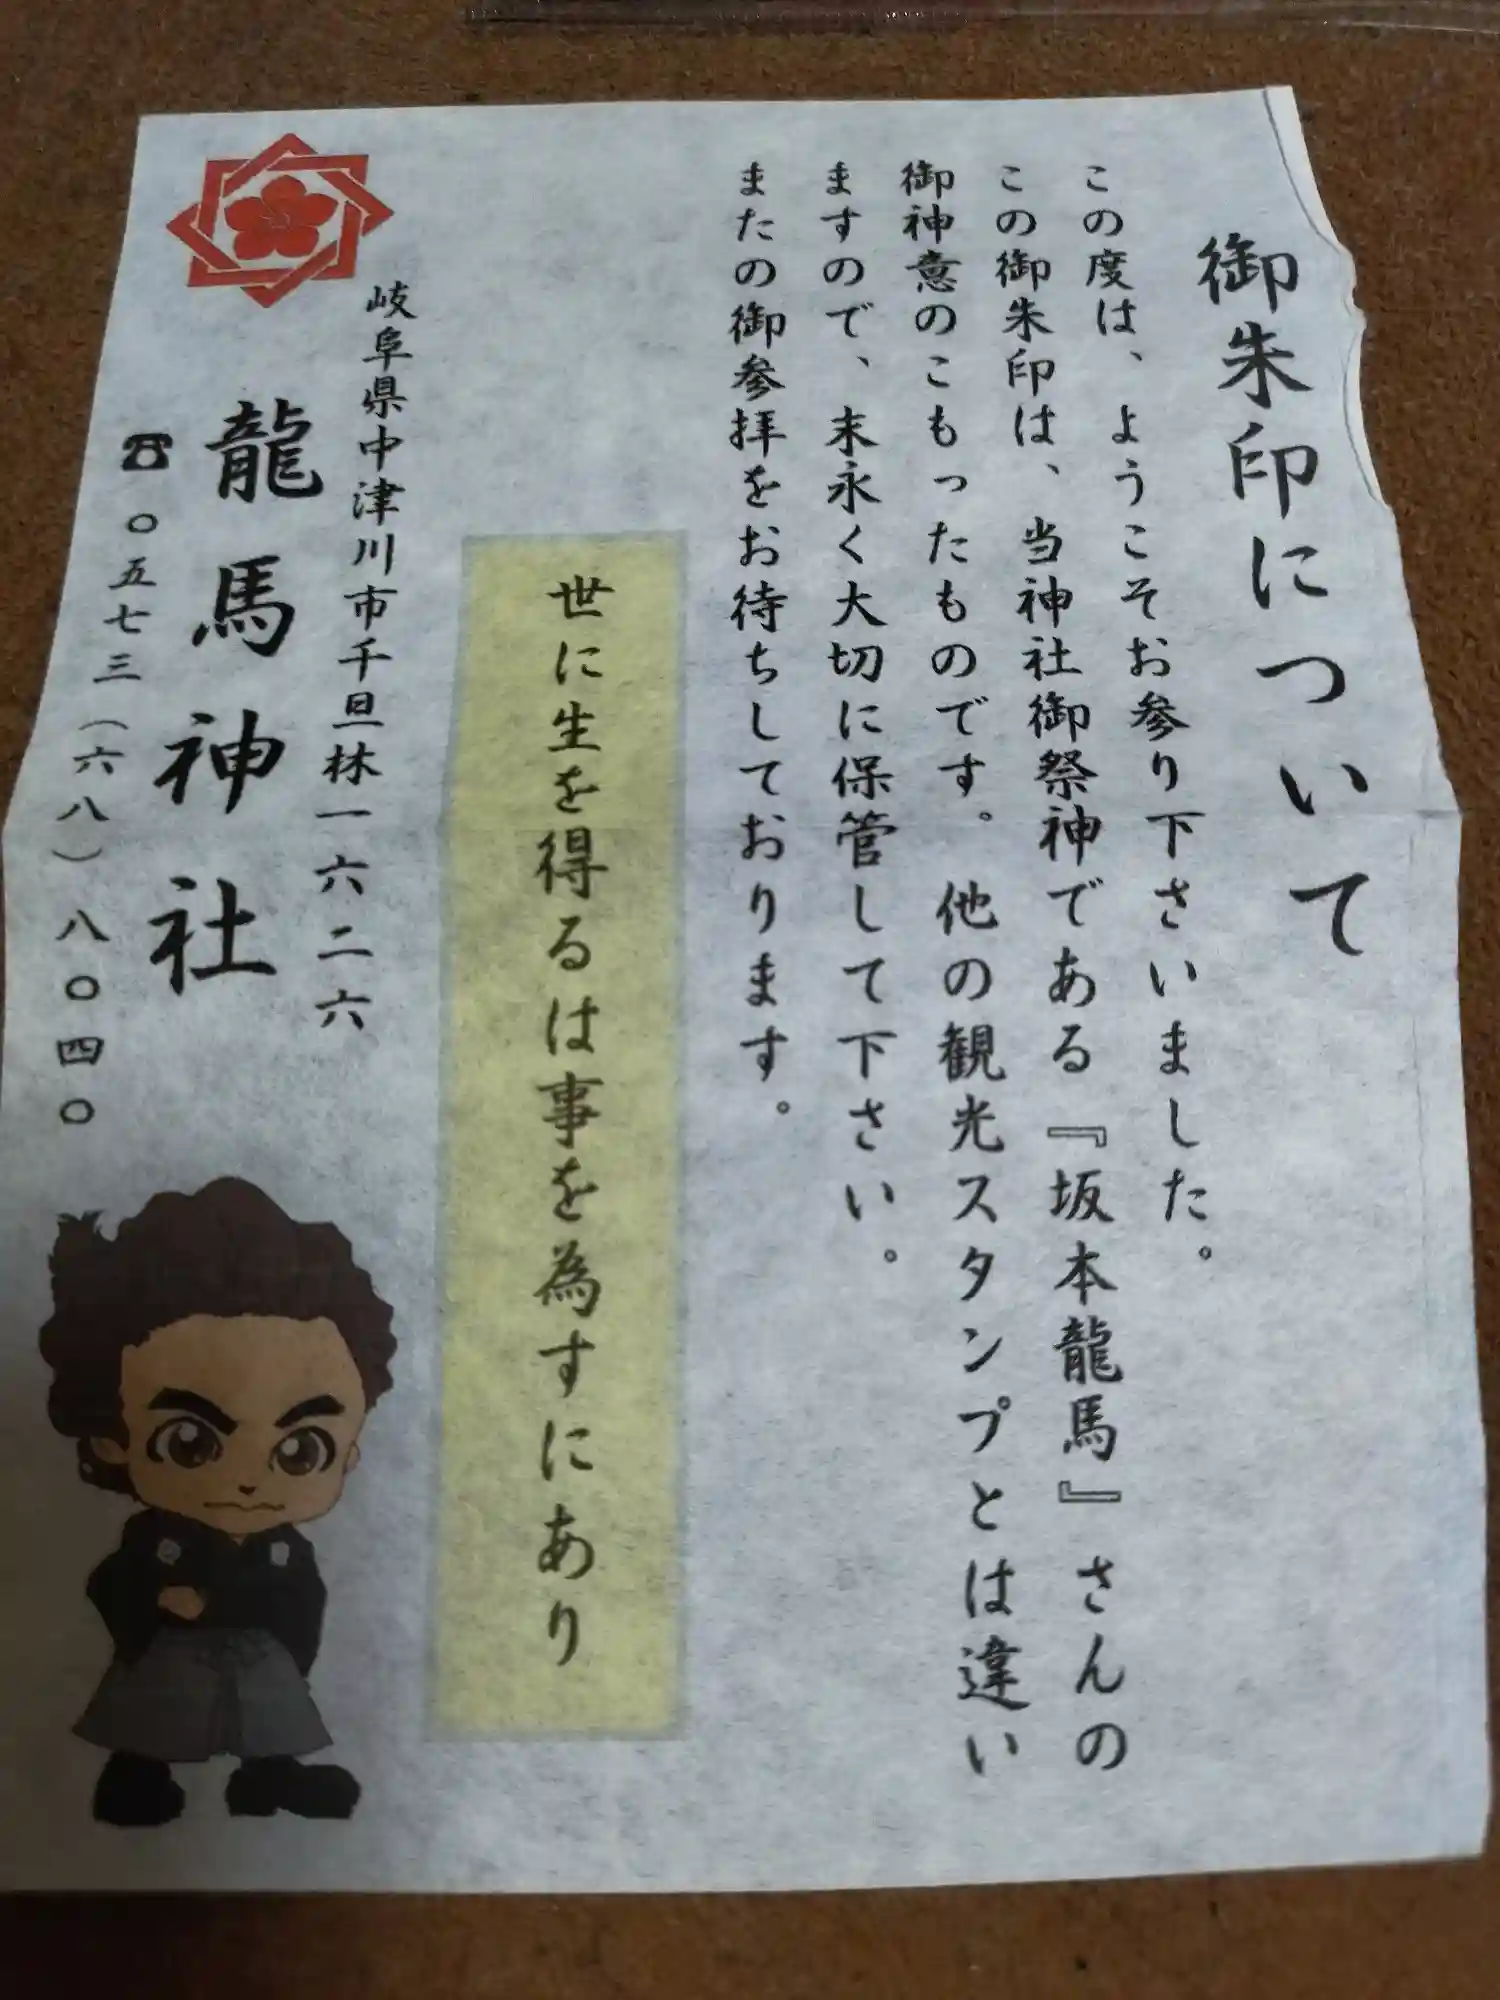 御朱印について
この度は、ようこそお参り下さいました。
この御朱印は、当神社御祭神である『坂本龍馬』さんの
御神意のこもったものです。他の観光スタンプとは違い
ますので、末永く大切に保管して下さい。
またの御参拝をお待ちしております。
世に生を得るは事を為すにあり
岐阜県中津川市千旦林一六二六
龍馬神社
☎〇五七三(六八)八〇四〇